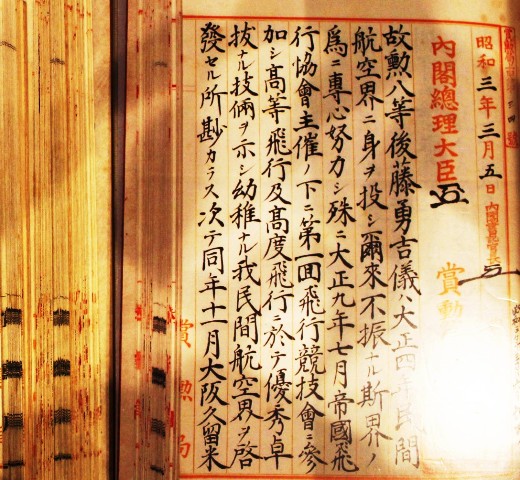 昭和三年三月五日
內閣總理大臣
賞勲
故勲八等後藤勇吉儀ハ大正四年民間
航空界ニ身ヲ投シ爾來不振ナル斯界ノ
爲ニ專心努力シ殊ニ大正九年七月帝國飛
行協會主催ノ下ニ第一回飛行競技會ニ參
加シ高等飛行及高度飛行ニ於テ優秀卓
拔ナル技倆ヲ示シ幼稚ナル我民間航空界ヲ啓
發セル所尠カラス次テ同年十一月大阪久留米
賞勲局